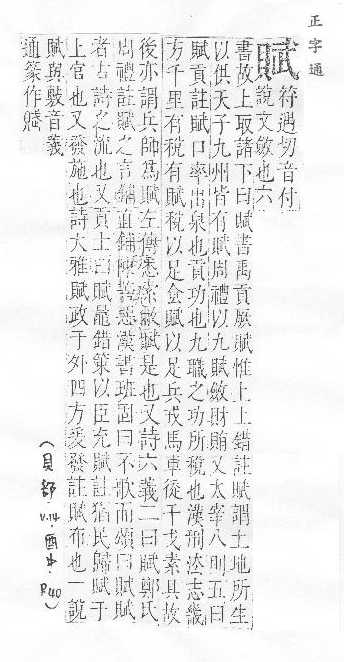 正字通
賦
符遇切音付
說文斂也六
書故上取諸下曰賦書禹貢厥賦惟上上錯註賦謂土地所生
以供天子九州皆有賦周禮以九賦斂財賄又太宰八則五曰
賦貢註賦口率出泉也貢功也九職之功所稅也漢刑法志畿
方千里有稅有賦稅以足食賦以足兵戎馬車徒干戈素具故
後亦謂兵師爲賦左傳悉索敝賦是也又詩六義二曰賦鄭氏
周禮註賦之言鋪直鋪陳善惡漢書班固曰不歌而頌曰賦賦
者古詩之流也又貢士曰賦鼂錯策以臣充賦註猶民歸賦于
上官也又發施也詩大雅賦政于外四方爰發註賦布也一說
賦與敷音義
通篆作
(貝部.V.14.酉中.P40)